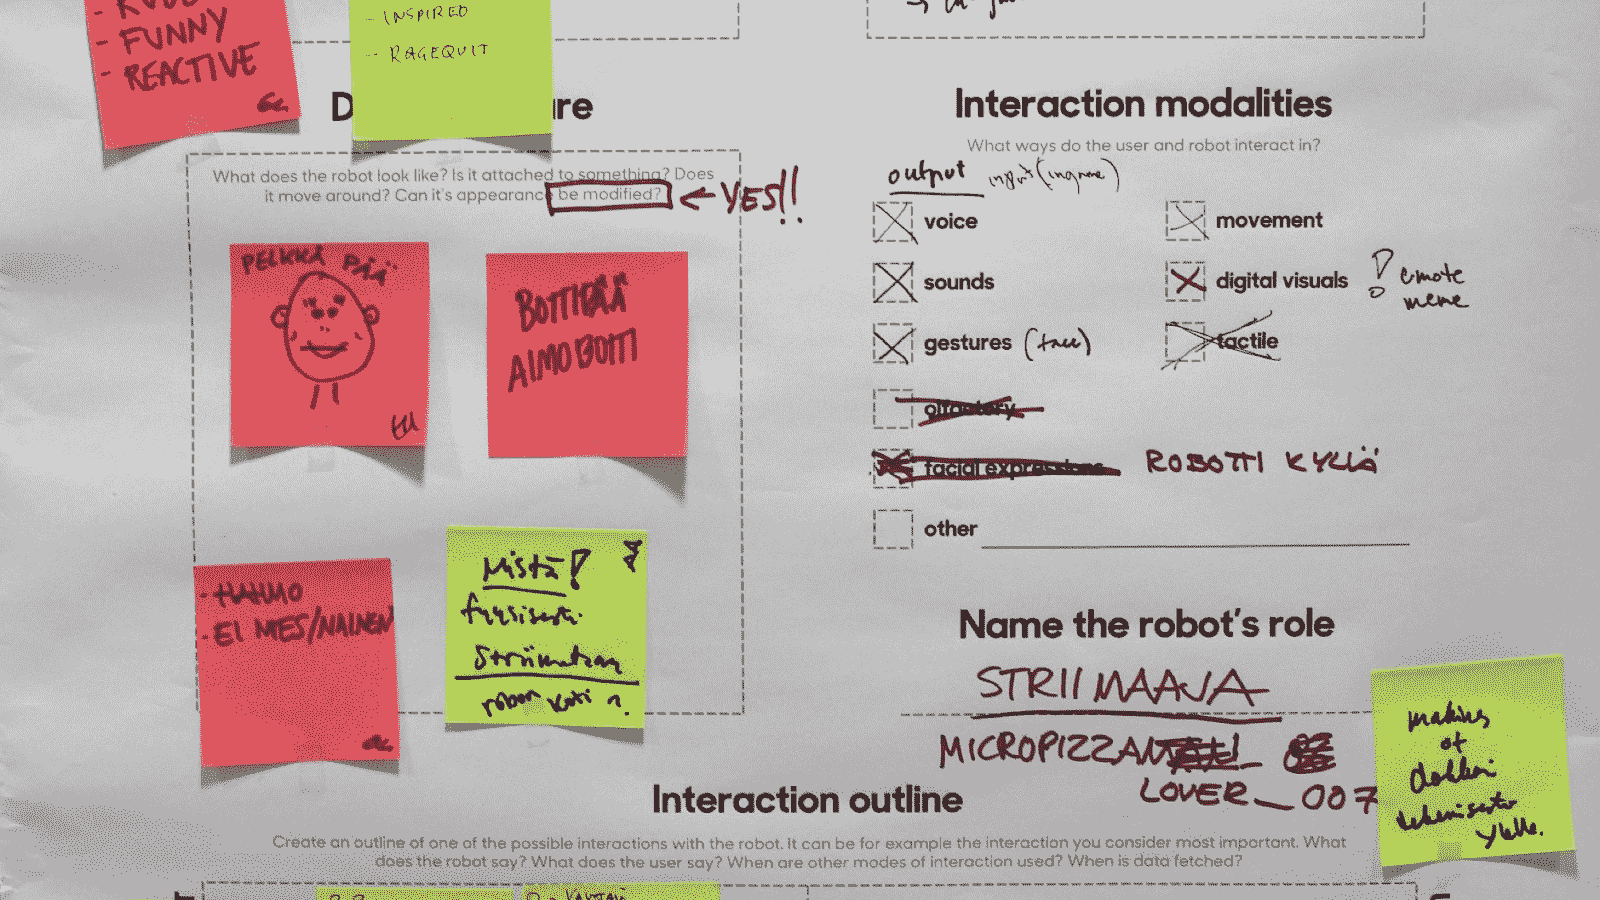 - FUNNY
- REACTIVE
- INSPIRED
-- RAGEQUIT
What does the robot look like? Is it attached to something? Does
it move around? Can it's appearance be modified?
← YES!!
PELKKÄ PÄÄ
BOTTIPÄÄ
AIMOBOTTI
- HAHMO
- EI MIES/NAINEN
Mistä?
Interaction modalities
What ways do the user and robot interact in?
output
input (ingame)
voice
movement
sounds
digital visuals
emote
meme
gestures (face)
tactile
olfactory
facial expressions
ROBOTTI KYLLÄ
other
Name the robot's role
STRIIMAAJA
MICROPIZZA
LOVER_007
making
of
Interaction outline
Create an outline of one of the possible interactions with the robot. It can be for example the interaction you consider most important. What
does the robot say? What does the user say? When are other modes of interaction used? When is data fetched?